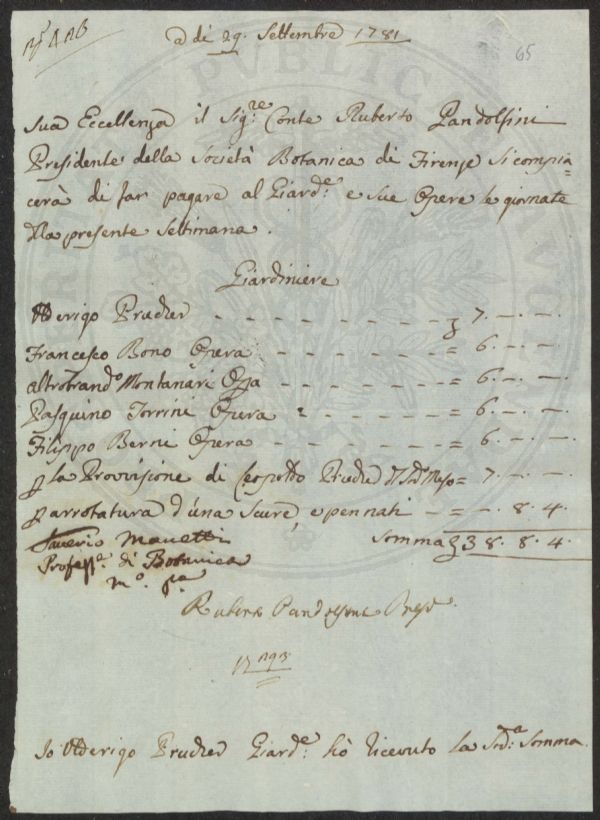 a dì 29. Settembre 1781
65
Sua Eccellenza il Sig:re Conte Ruberto Pandolfini
Presidente della Società Botanica di Firenze si compia=
cerà di far pagare al Giard:e e sue Opere le giornate
d'la presente Settimana.
Giardiniere
Ulderigo Prucker - - - - - - - 7. -. -.
Francesco Bono Opera - - - - - = 6. -. -.
altro Montanari Opa - - - - - = 6. -. -.
Pasquino Torrini Opera - - - - = 6. -. -.
Filippo Berni Opera - - - - - = 6. -. -.
p la Provvisione di Prucker = 7. -. -.
p arrotatura d'una Scure, e pennati - = -. 8. 4.
Saverio Manetti Somma 38. 8. 4.
Profess:e di Botanica
m:o p:a
Ruberto Pandolfini Presid:e
Io Ulderigo Prucker Giard:e hò ricevuto la Sud:a Somma